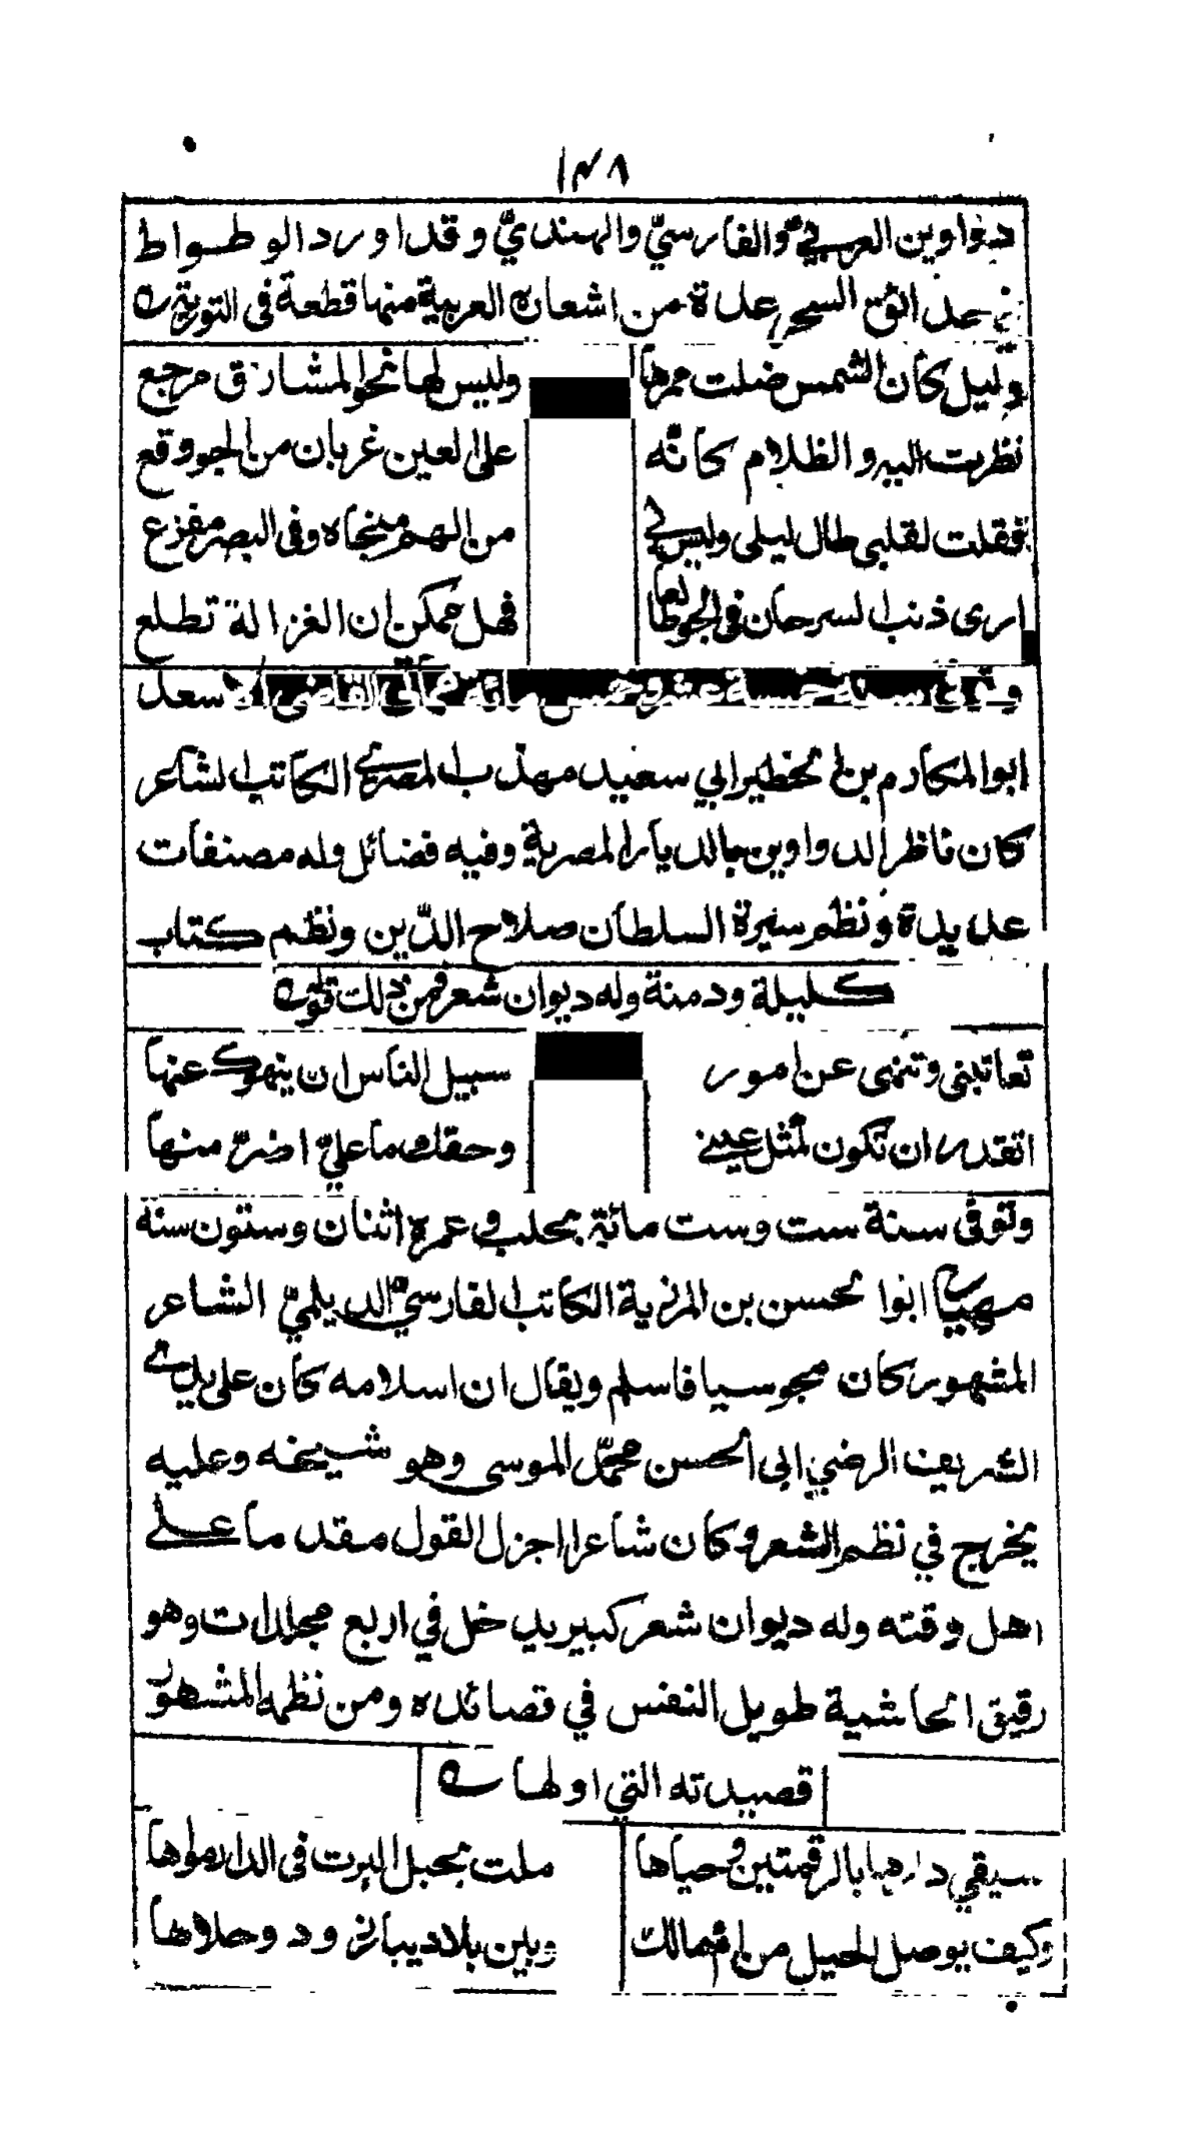 ١٣٨
دواوين العربيّ والفارسيّ والهنديّ وقد اورد الوطواط
في حدائق السحر عدة من اشعاره العربية منها قطعة فى التورية ه
وليل كأن الشمس ضلت ممرها وليس لها نحو المشارق مرجع
نظرت اليه والظلام كأنّه على العين غربان من الجو وقع
فقلت لقلبى طال ليلى وليس لي من الهم منجاة وفى البصر مفزع
ارى ذنب السرحان فى الجو طالعا فهل ممكن ان الغزالة تطلع
وتوفي سنة خمسة عشر وخمس مائة مماتي القاضي الاسعد
ابو المكارم بن الخطير ابي سعيد مهذب المصري الكاتب الشاعر
كان ناظر الدواوين بالديار المصرية وفيه فضائل وله مصنفات
عديدة ونظم سيرة السلطان صلاح الدّين ونظم كتاب
كليلة ودمنة وله ديوان شعر فمن ذلك قوله ه
تعاتبنى وتنهى عن امور سبيل الناس ان ينهوك عنها
اتقدر ان تكون كمثل عيني وحقك ما عليّ اضرّ منها
وتوفى سنة ست وست مائة بحلب وعمره اثنان وستون سنة
مهيار ابوا لحسن بن المرزية الكاتب الفارسيّ الديلميّ الشاعر
المشهور كان مجوسيا فاسلم ويقال ان اسلامه كان على يدي
الشريف الرضي ابى الحسن محمّد الموسى وهو شيخه وعليه
يخرج في نظم الشعر وكان شاعرا جزل القول مقدما على
اهل وقته وله ديوان شعر كبير يدخل في اربع مجلدات وهو
رقيق الحاشية طويل النفس في قصائده ومن نظمه المشهور
قصيدته التي اولها ه
سيقي دارها بالرقمتين وحياها ملت يحيل الترب فى الدار مواها
وكيف يوصل الحيل من ام مالك وبين بلاديبا زرود وحلاها